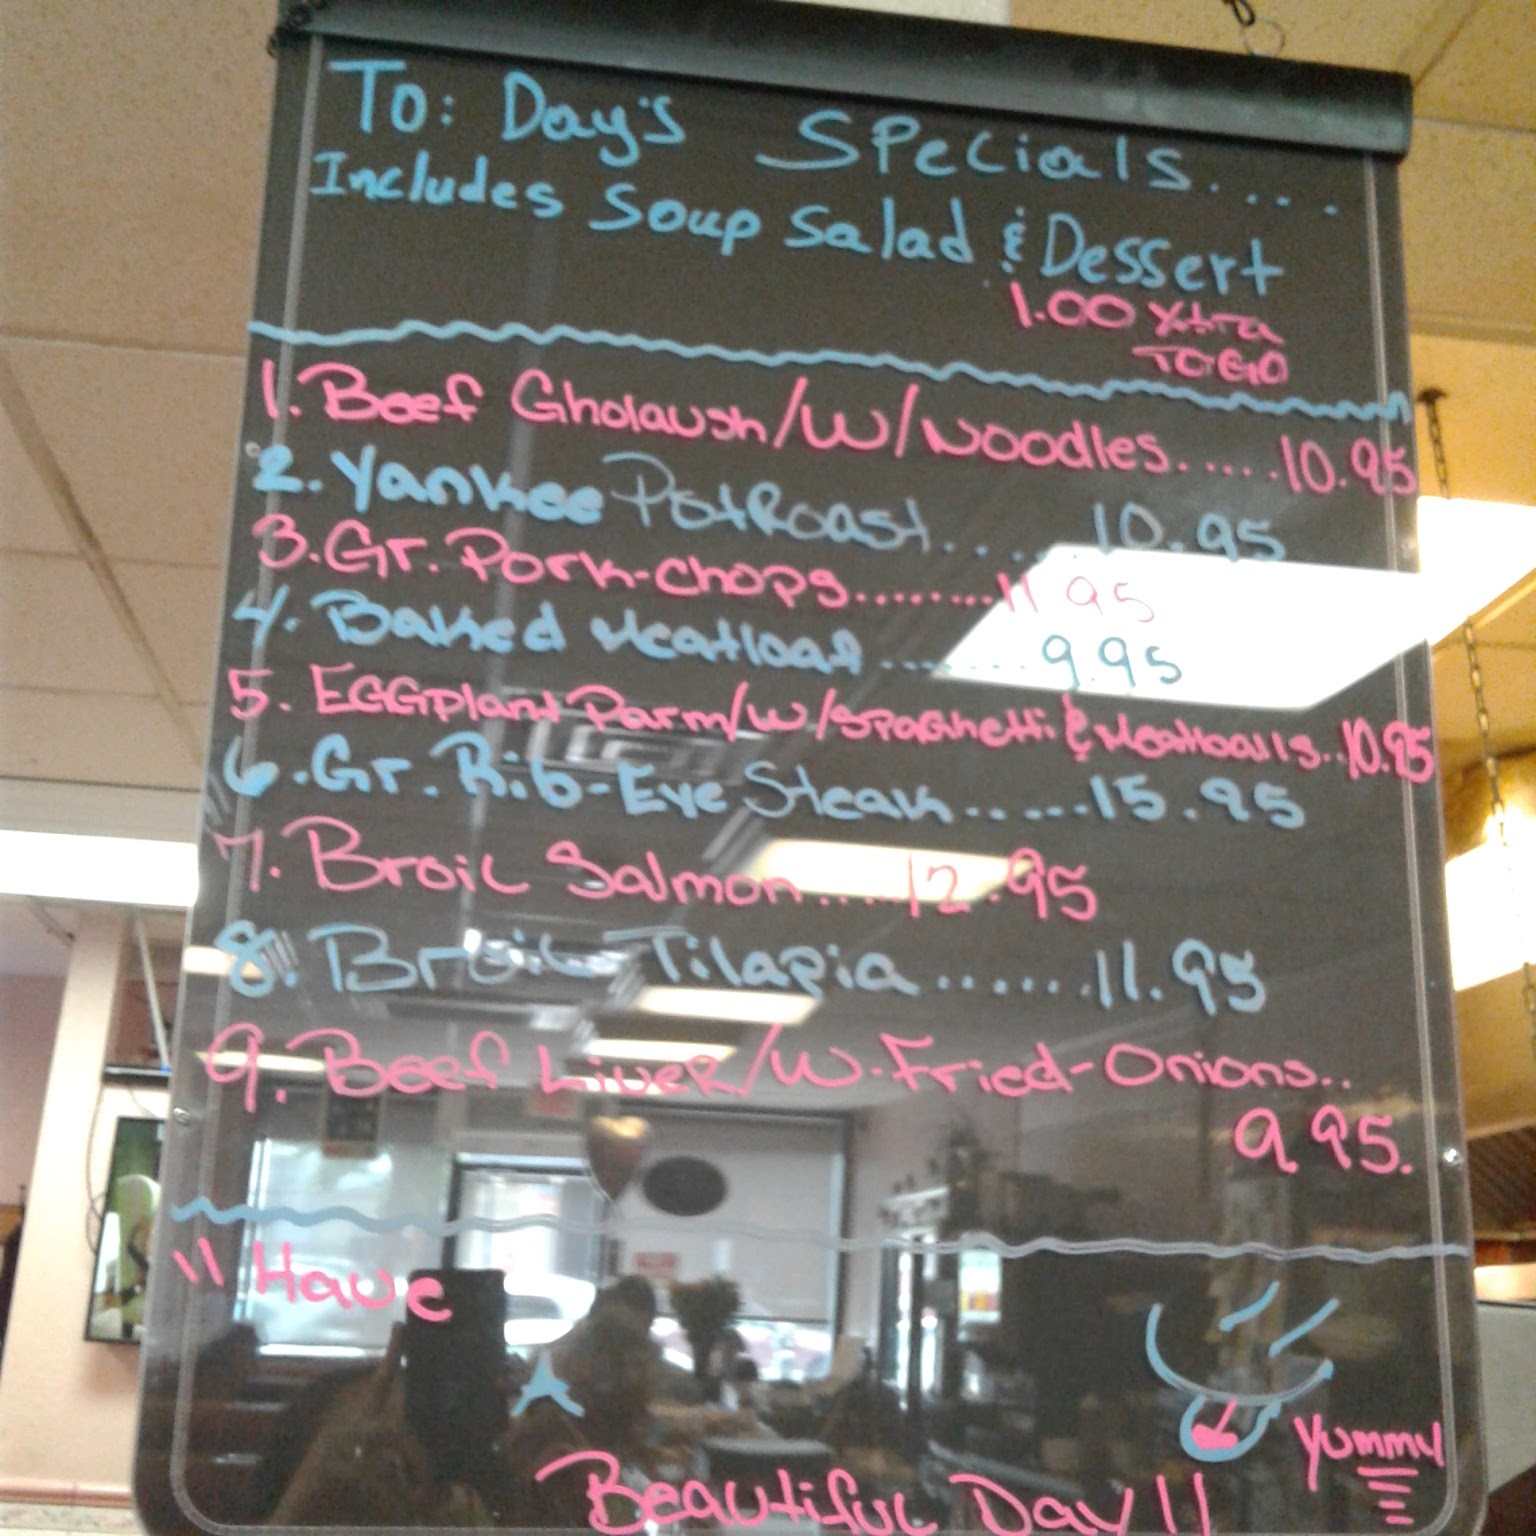 To: Day's Specials....
Includes Soup Salad & Dessert
1.00 Xtra
TO GO
1. Beef Gholaush/W/Noodles.....10.95
2. Yankee Pot Roast.......10.95
3. Gr. Pork-chops........11 95
4. Baked Meatloaf.......9.95
5. EGGplant Parm/W/Spaghetti & Meatballs..10.95
6. Gr. Rib-Eye Steak.....15.95
7. Broil Salmon.....12.95
8. Broil Tilapia......11.95
9. Beef Liver/W. Fried-Onions..
9 95.
" Have
A
Yummy
Beautiful Day!!